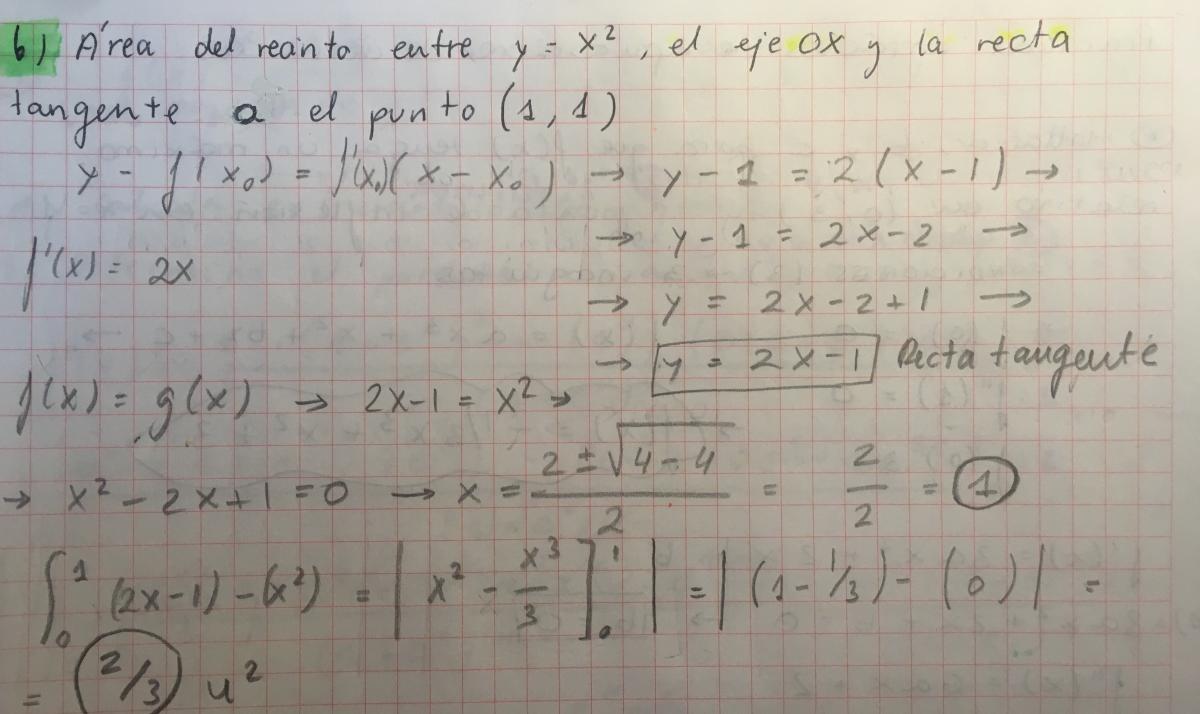 b) Área del recinto entre y = x², el eje OX y la recta
tangente a el punto (1, 1)
y - f(x₀) = f'(x₀)(x - x₀) → y - 1 = 2(x - 1) →
→ y - 1 = 2x - 2 →
f'(x) = 2x
→ y = 2x - 2 + 1 →
→ y = 2x - 1 Recta tangente
f(x) = g(x) → 2x - 1 = x² →
→ x² - 2x + 1 = 0 → x = (2 ± √(4 - 4))/2 = 2/2 = 1
∫₀¹ (2x - 1) - (x²) = | x² - x³/3 ]₀¹ | = | (1 - 1/3) - (0) | =
= 2/3 u²